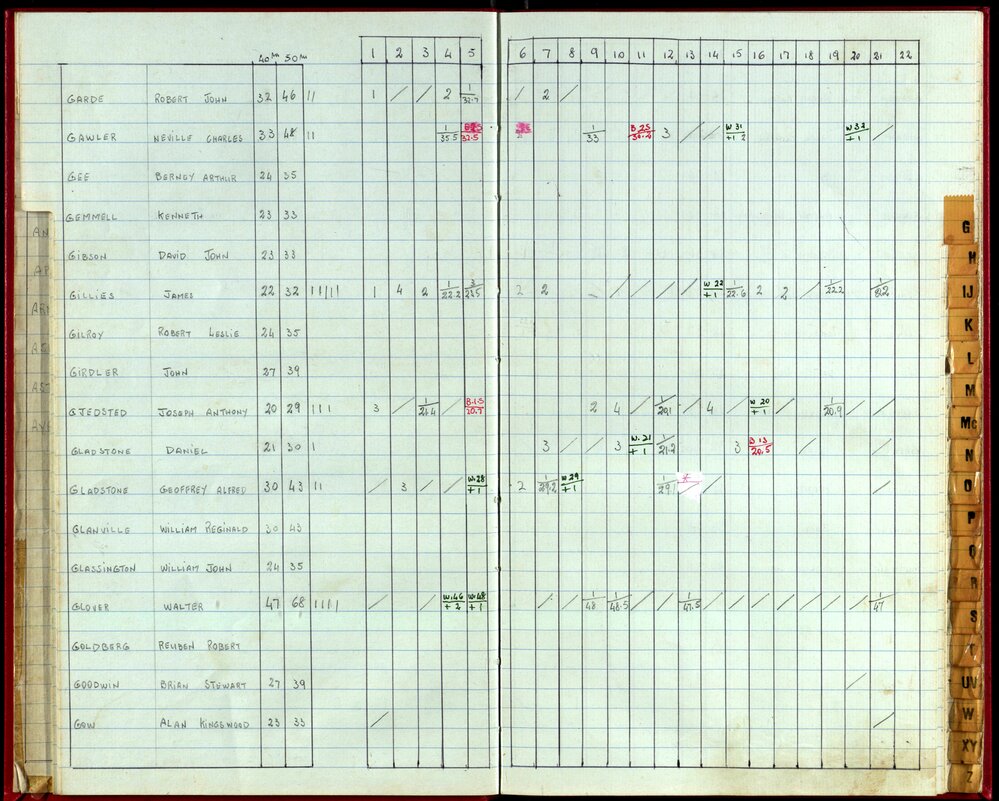 40m 50m 1 2 3 4 5 6 7 8 9 10 11 12 13 14 15 16 17 18 19 20 21 22
GARDE ROBERT JOHN 32 46 || 1 / / 2 1/32.7 / 2 /
GAWLER NEVILLE CHARLES 33 48 || 1/35.5 32.5 1/33 B 25 3 / / W 31 +1.2 W 32 +1 /
GEE BERNEY ARTHUR 24 35
GEMMELL KENNETH 23 33
GIBSON DAVID JOHN 23 33
GILLIES JAMES 22 32 |||||| 1 4 2 1/22.2 3/23.5 2 2 / / / / W 22 +1 1/22.6 2 2 / 1/22.2
GILROY ROBERT LESLIE 24 35
GIRDLER JOHN 27 39
GJEDSTED JOSEPH ANTHONY 20 29 ||| 3 / 1/21.4 / B.1.5 20.7 2 4 / 1/20.1 / 4 / W 20 +1 / 1/20.9 / /
GLADSTONE DANIEL 21 30 | 3 / / 3 W.21 +1 1/21.2 3 B 13 20.5 / /
GLADSTONE GEOFFREY ALFRED 30 43 || / 3 / / W.28 +1 2 1/29.2 W 29 +1 1/29.1 * / / /
GLANVILLE WILLIAM REGINALD 30 43
GLASSINGTON WILLIAM JOHN 24 35
GLOVER WALTER 47 68 |||| / / W.46 +2 W.48 +1 / / 1/48 1/48.5 / / 1/47.5 / / / / / / / 1/47
GOLDBERG REUBEN ROBERT
GOODWIN BRIAN STEWART 27 39 /
GOW ALAN KINGSWOOD 23 33 / /
AN
AP
AR
AS
AS
G
H
IJ
K
L
M
Mc
N
O
P
Q
R
S
T
UV
W
XY
Z